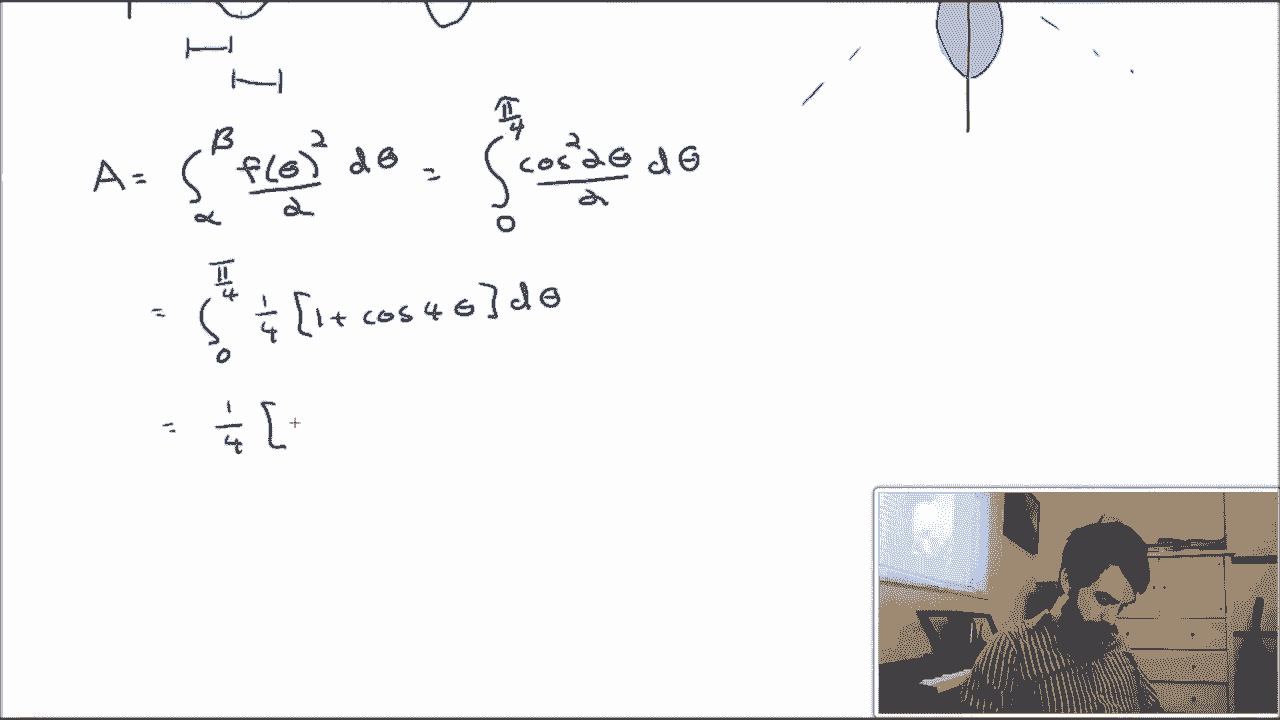 A = ∫_α^β f(θ)²/2 dθ = ∫_0^{π/4} cos²2θ/2 dθ
= ∫_0^{π/4} 1/4 [1 + cos 4θ] dθ
= 1/4 [